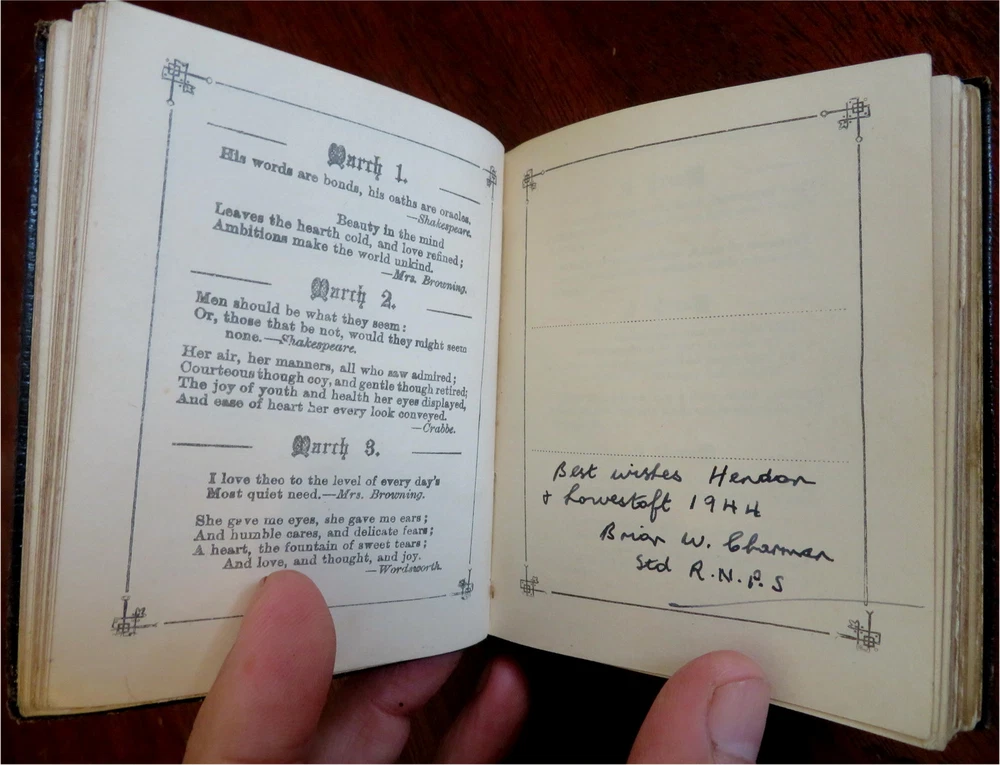 March 1.
His words are bonds, his oaths are oracles.
—Shakespeare.
Beauty in the mind
Leaves the hearth cold, and love refined;
Ambitions make the world unkind.
—Mrs. Browning.
March 2.
Men should be what they seem:
Or, those that be not, would they might seem
none.—Shakespeare.
Her air, her manners, all who saw admired;
Courteous though coy, and gentle though retired;
The joy of youth and health her eyes displayed,
And ease of heart her every look conveyed.
—Crabbe.
March 3.
I love theo to the level of every day's
Most quiet need.—Mrs. Browning.
She gave me eyes, she gave me ears;
And humble cares, and delicate fears;
A heart, the fountain of sweet tears;
And love, and thought, and joy.
—Wordsworth.
Best wishes Hendon
& Lowestoft 1944
Brian W. Charman
Std R.N.P.S